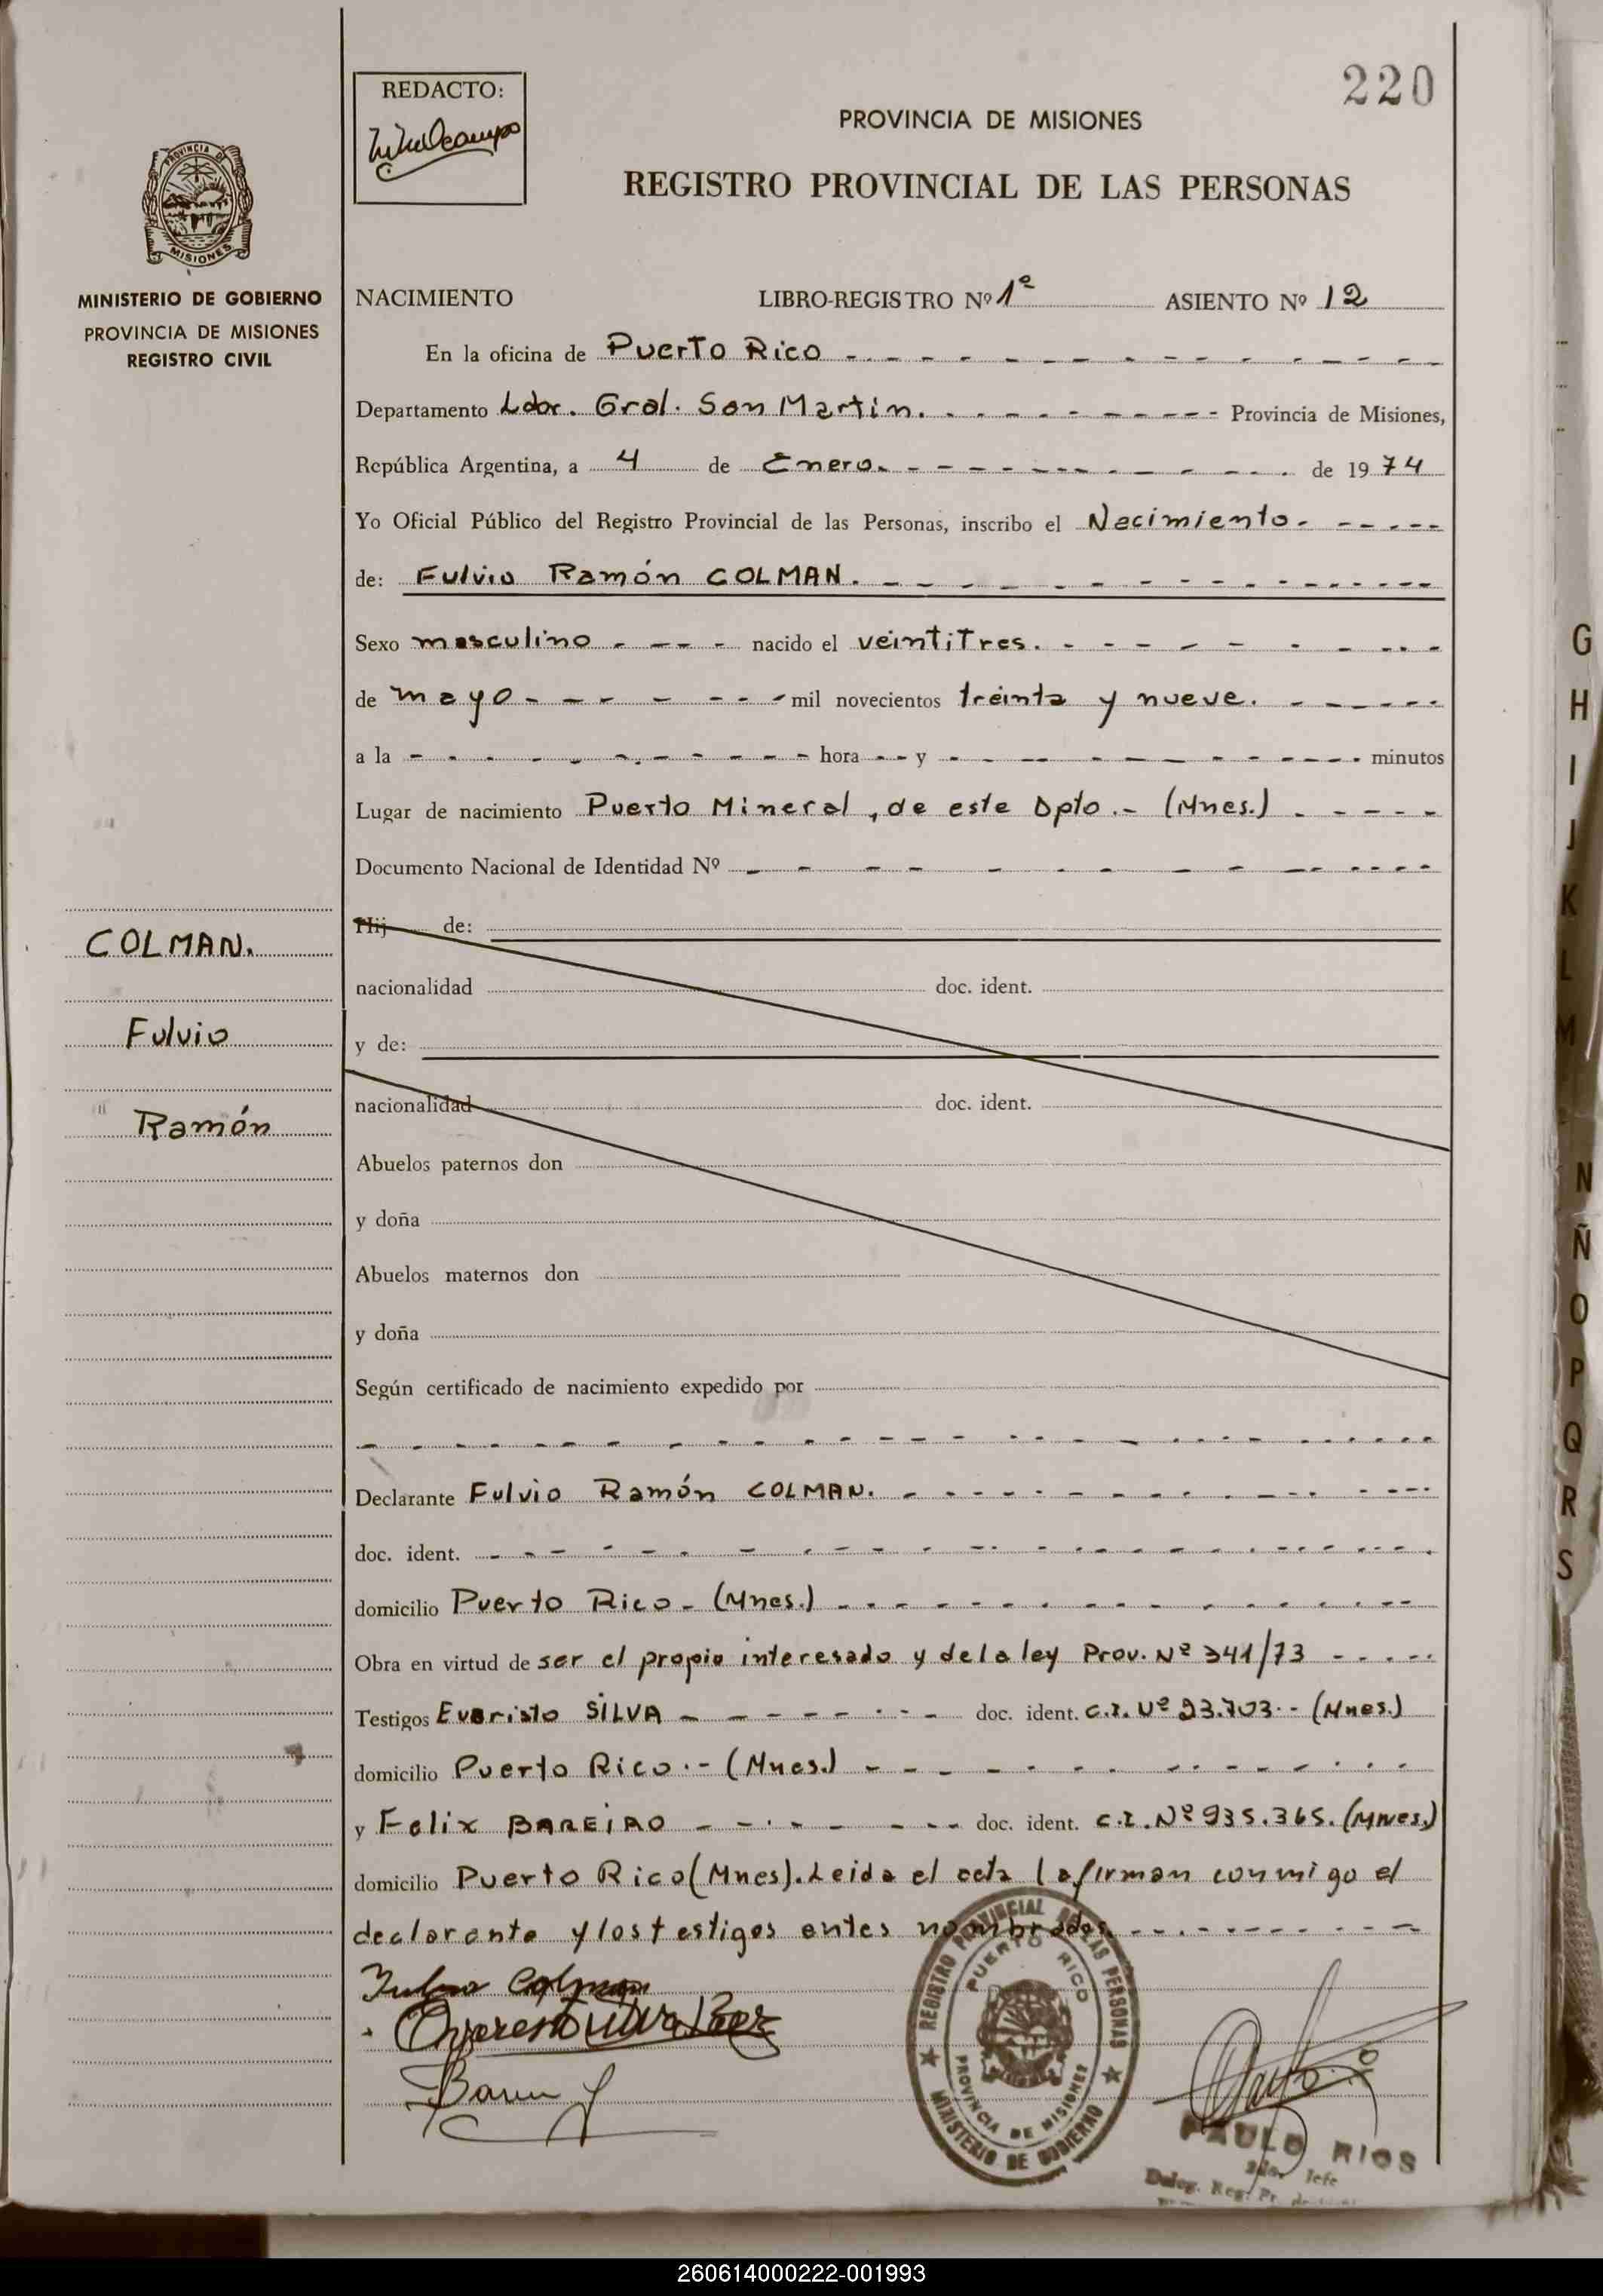 220
REDACTO:
PROVINCIA DE MISIONES
REGISTRO PROVINCIAL DE LAS PERSONAS
PROVINCIA DE
MISIONES
MINISTERIO DE GOBIERNO
PROVINCIA DE MISIONES
REGISTRO CIVIL
NACIMIENTO LIBRO-REGISTRO Nº 1º ASIENTO Nº 12
En la oficina de Puerto Rico
Departamento Ldor. Gral. San Martin. Provincia de Misiones,
República Argentina, a 4 de Enero. de 1974
Yo Oficial Público del Registro Provincial de las Personas, inscribo el Nacimiento.
de: Fulvio Ramón COLMAN.
Sexo masculino nacido el veintitres.
de mayo mil novecientos treinta y nueve.
a la hora y minutos
Lugar de nacimiento Puerto Mineral, de este Dpto.- (Mnes.)
Documento Nacional de Identidad Nº
Hij de:
COLMAN.
nacionalidad doc. ident.
Fulvio
y de:
nacionalidad doc. ident.
Ramón
Abuelos paternos don
y doña
Abuelos maternos don
y doña
Según certificado de nacimiento expedido por
Declarante Fulvio Ramón COLMAN.
doc. ident.
domicilio Puerto Rico - (Mnes.)
Obra en virtud de ser el propio interesado y de la ley Prov. Nº 341/73
Testigos Evaristo SILVA doc. ident. C.I. Nº 23.703.- (Mnes.)
domicilio Puerto Rico.- (Mnes.)
y Felix BAREIRO doc. ident. C.I. Nº 935.365. (Mnes.)
domicilio Puerto Rico (Mnes). Leida el acta la firman conmigo el
declarante y los testigos antes nombrados.
Fulvio Colman
REGISTRO PROVINCIAL DE LAS PERSONAS
PUERTO RICO
PROVINCIA DE MISIONES
MINISTERIO DE GOBIERNO
PAULO RIOS
2do. Jefe
Deleg. Reg. Pr. de
G
H
I
J
K
L
M
N
Ñ
O
P
Q
R
S
260614000222-001993